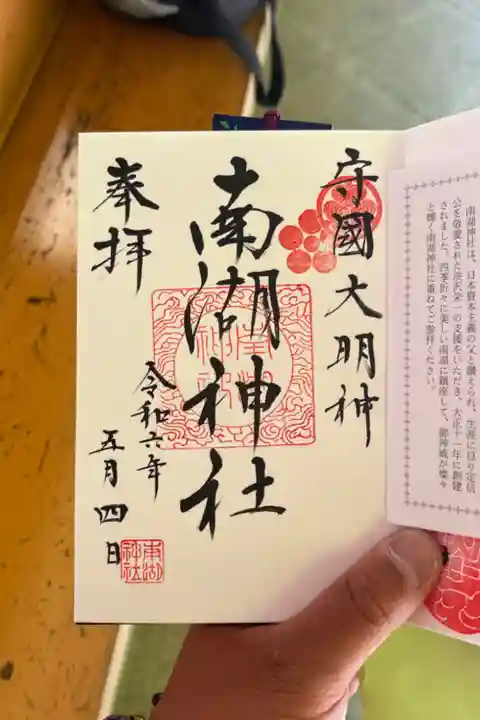 南湖神社は、日本資本主義の父と讃えられ、生涯に亘り定信
公を敬愛された渋沢栄一の支援をいただき、大正十一年に創建
されました。四季折々に美しい南湖に鎮座して、御神威が燦々
と輝く南湖神社に重ねてご参拝ください。
守國大明神
南湖神社
奉拝
令和六年
五月四日
南湖
神社